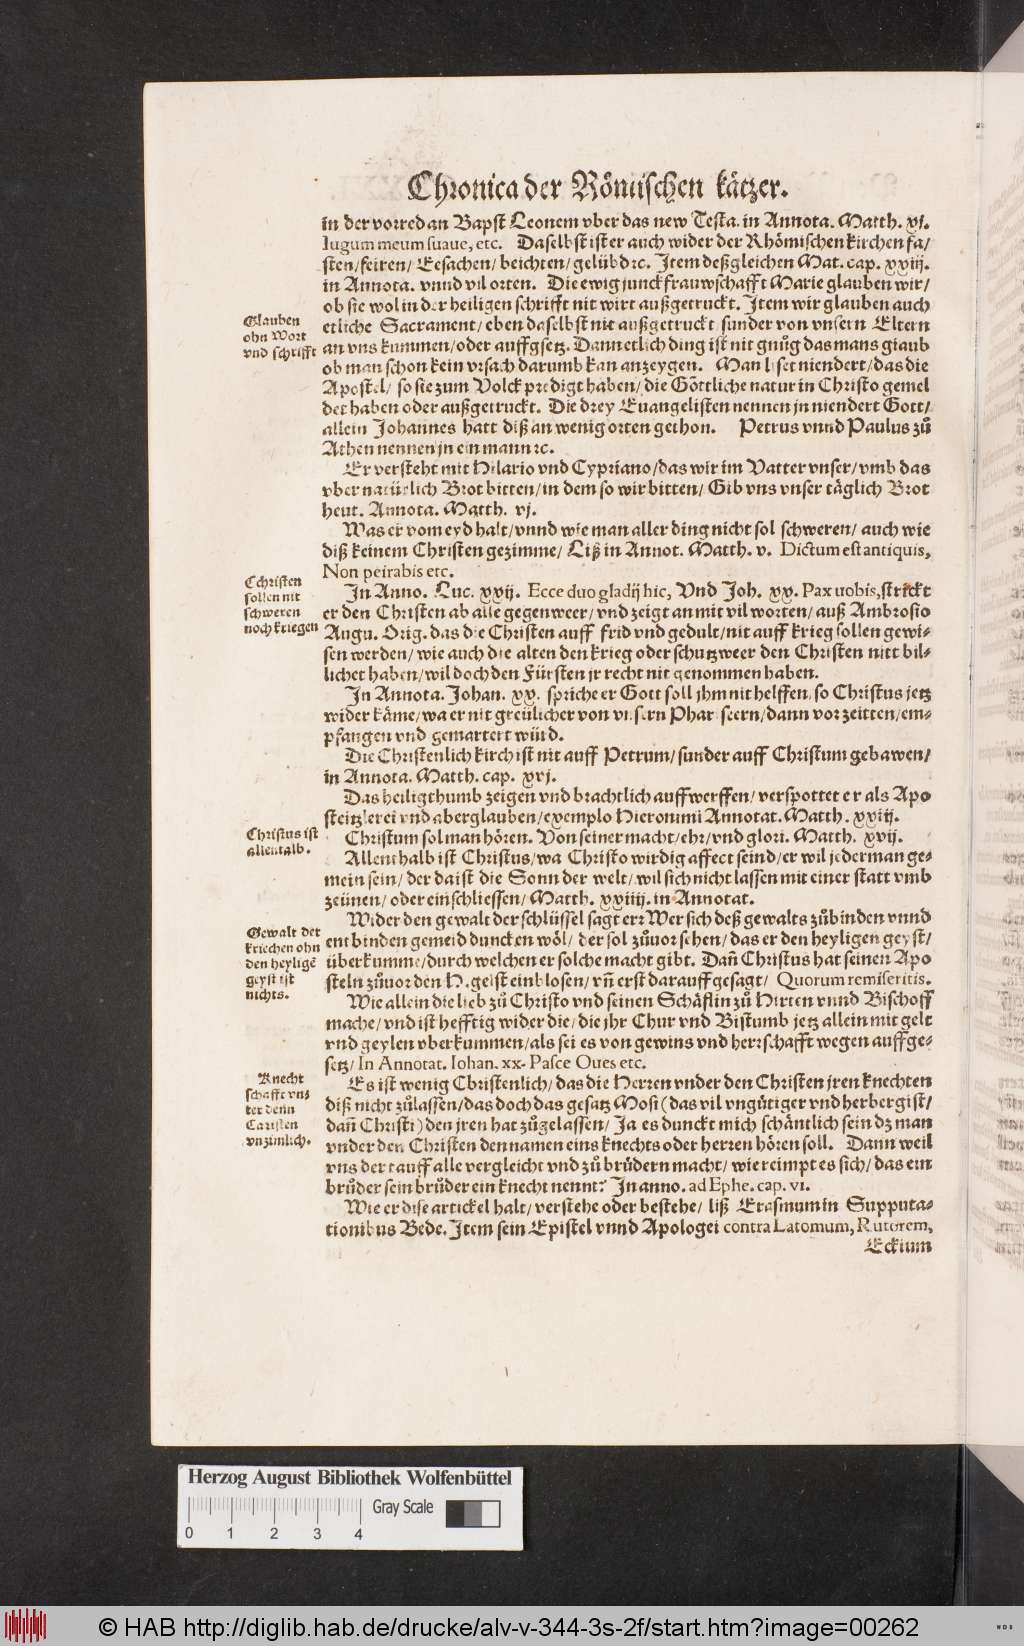 Chronica der Römischen kätzer.
in der vorred an Bapst Leonem vber das new Testa. in Annota. Matth. xj.
Iugum meum suaue, etc. Daselbst ist er auch wider der Rhömischen kirchen fa/
sten/feiren/ Eesachen/ beichten/ gelübd ꝛc. Item deßgleichen Mat. cap. xxiij.
in Annota. vnnd vil orten. Die ewig junckfrauwschafft Marie glauben wir/
ob sie wol in der heiligen schrifft nit wirt außgetruckt. Item wir glauben auch
Glauben
ohn Wort
vnd schrifft
etliche Sacrament/ eben daselbst nit außgetruckt sunder von vnsern Eltern
an vns kummen/oder auffgsetz. Dann etlich ding ist nit gnůg das mans glaub
ob man schon kein vrsach darumb kan anzeygen. Man liset niendert/das die
Apostel/ so sie zum Volck predigt haben/ die Göttliche natur in Christo gemel
det haben oder außgetruckt. Die drey Euangelisten nennen jn niendert Gott/
allein Johannes hatt diß an wenig orten gethon. Petrus vnnd Paulus zů
Athen nennen jn ein mann ꝛc.
Er versteht mit Hilario vnd Cypriano/das wir im Vatter vnser/ vmb das
vber natürlich Brot bitten/in dem so wir bitten/ Gib vns vnser täglich Brot
heut. Annota. Matth. vj.
Was er vom eyd halt/vnnd wie man aller ding nicht sol schweren/ auch wie
diß keinem Christen gezimme/ Liß in Annot. Matth. v. Dictum est antiquis,
Non peirabis etc.
Cchristen
sollen nit
schweren
noch kriegen
In Anno. Luc. xxij. Ecce duo gladij hic, Vnd Joh. xx. Pax uobis, strickt
er den Christen ab alle gegenweer/ vnd zeigt an mit vil worten/ auß Ambrosio
Augu. Orig. das die Christen auff frid vnd gedult/nit auff krieg sollen gewi-
sen werden/ wie auch die alten den krieg oder schutzweer den Christen nitt bil-
lichet haben/wil doch den Fürsten jr recht nit genommen haben.
In Annota. Johan. xx. spriche er Gott soll jhm nit helffen, so Christus jetz
wider käme/wa er nit greülicher von vnsern Phariseern/dann vorzeitten/em-
pfangen vnd gemartert würd.
Die Christenlich kirch ist nit auff Petrum/sunder auff Christum gebawen/
in Annota. Matth. cap. xvj.
Das heiligthumb zeigen vnd brachtlich auffwerffen/ verspottet er als Apo
steitzlerei vnd aberglauben/exemplo Hieronimi Annotat. Matth. xxiij.
Christus ist
allenthalb.
Christum sol man hören. Von seiner macht/ehr/vnd glori. Matth. xvij.
Allenthalb ist Christus/wa Christo wirdig affect seind/er wil jederman ge-
mein sein/ der da ist die Sonn der welt/ wil sich nicht lassen mit einer statt vmb
zeünen/ oder einschliessen/ Matth. xxiiij. in Annotat.
Gewalt der
kriechen ohn
den heyligē
geyst ist
nichts.
Wider den gewalt der schlüssel sagt er: Wer sich deß gewalts zůbinden vnnd
entbinden gemeid duncken wöl/ der sol zůuor sehen/das er den heyligen geyst/
überkumme/durch welchen er solche macht gibt. Dañ Christus hat seinen Apo
steln zůuor den H. geist einblosen/ vñ erst darauff gesagt/ Quorum remiseritis.
Wie allein die lieb zů Christo vnd seinen Schäflin zů Hirten vnnd Bischoff
mache/ vnd ist hefftig wider die/ die jhr Chur vnd Bistumb jetz allein mit gelt
vnd geylen vberkummen/als sei es von gewins vnd herrschafft wegen auffge-
setz/ In Annotat. Iohan. xx. Pasce Oues etc.
Knecht
schafft vn-
ter denn
Caristen
vnzimlich.
Es ist wenig Christenlich/das die Herren vnder den Christen jren knechten
diß nicht zůlassen/das doch das gesatz Mosi (das vil vngůtiger vnd herber gist/
dañ Christi) den jren hat zůgelassen/ Ja es dunckt mich schäntlich sein dz man
vnder den Christen den namen eins knechts oder herren hören soll. Dann weil
vns der tauff alle vergleicht vnd zů brůdern macht/ wie reimpt es sich/das ein
brůder sein brůder ein knecht nennt? In anno. ad Ephe. cap. vi.
Wie er dise artickel halt/ verstehe oder bestehe/ liß Erasmum in Supputa-
tionibus Bede. Item sein Epistel vnnd Apologei contra Latomum, Rutorem,
Eckium
Herzog August Bibliothek Wolfenbüttel
Gray Scale
0 1 2 3 4
© HAB http://diglib.hab.de/drucke/alv-v-344-3s-2f/start.htm?image=00262